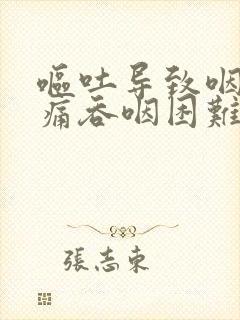 嘔吐导致咽
痛吞咽困難
張志东